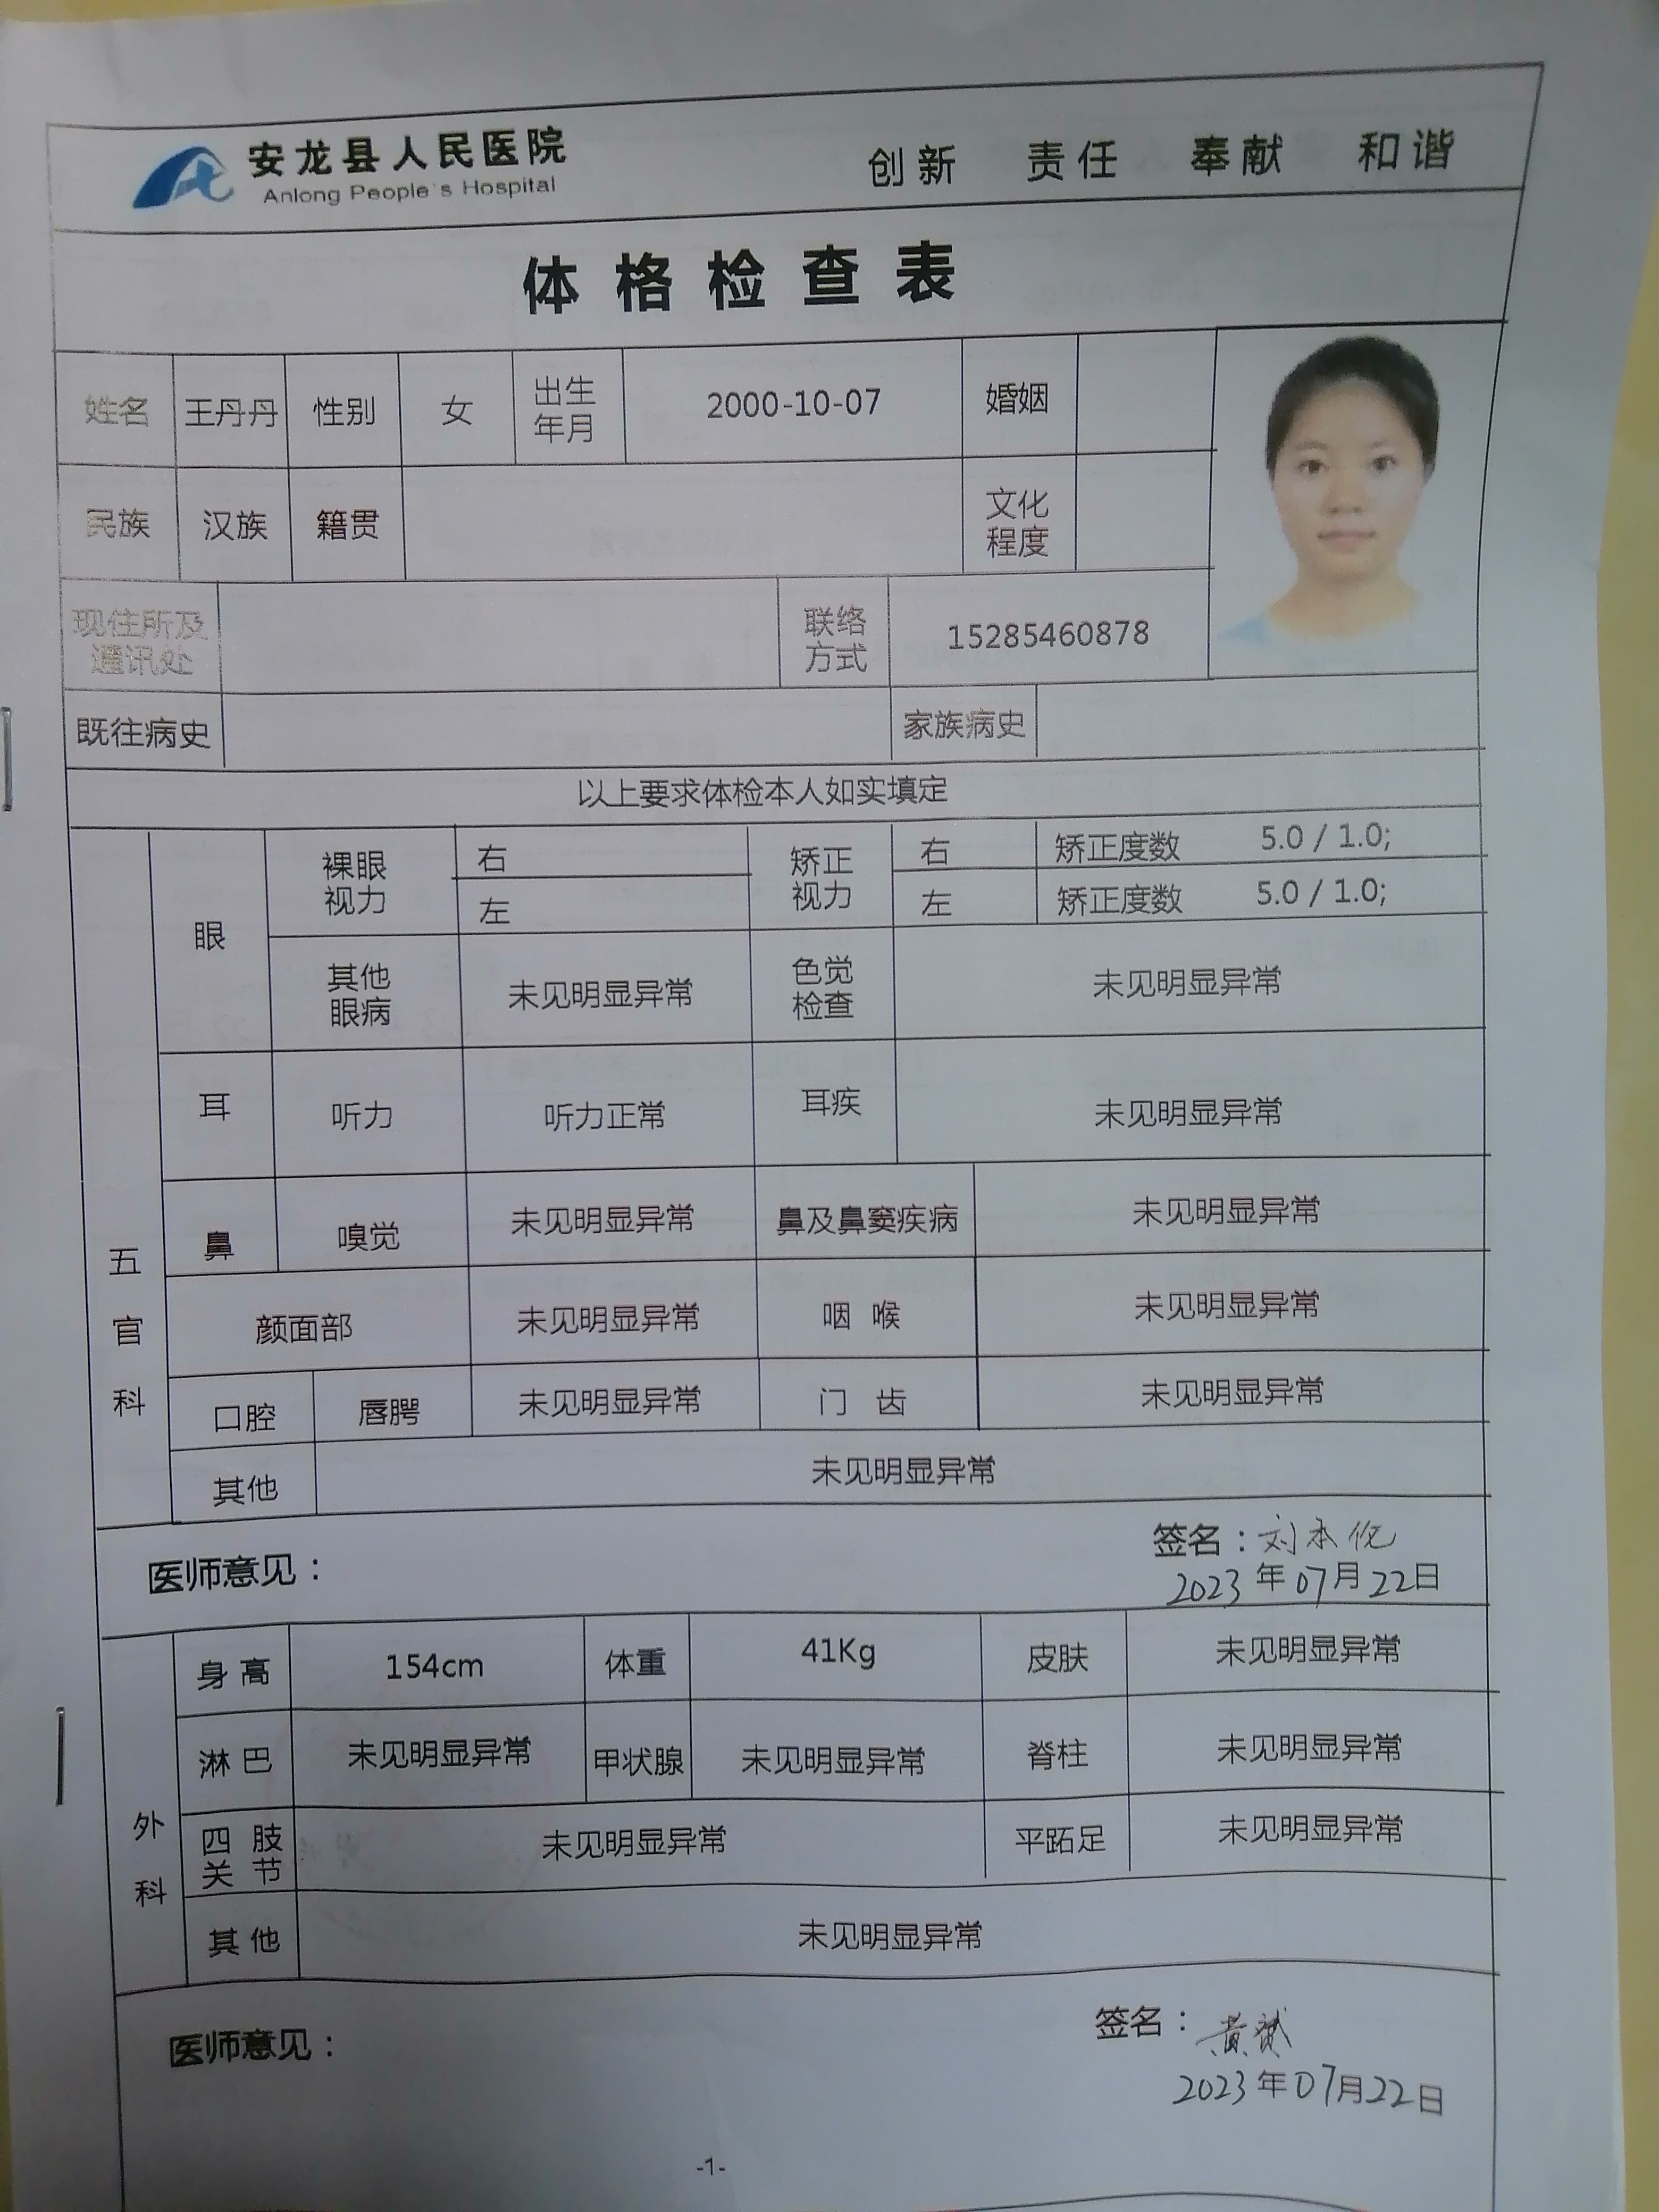 安龙县人民医院
Anlong People's Hospital
创新 责任 奉献 和谐
体格检查表
姓名 王丹丹 性别 女 出生年月 2000-10-07 婚姻
民族 汉族 籍贯 文化程度
现住所及通讯处 联络方式 15285460878
既往病史 家族病史
以上要求体检本人如实填定
五官科
眼 裸眼视力 右 矫正视力 右 矫正度数 5.0 / 1.0;
左 左 矫正度数 5.0 / 1.0;
其他眼病 未见明显异常 色觉检查 未见明显异常
耳 听力 听力正常 耳疾 未见明显异常
鼻 嗅觉 未见明显异常 鼻及鼻窦疾病 未见明显异常
颜面部 未见明显异常 咽 喉 未见明显异常
口腔 唇腭 未见明显异常 门 齿 未见明显异常
其他 未见明显异常
医师意见: 签名:
2023年07月22日
外科
身高 154cm 体重 41Kg 皮肤 未见明显异常
淋巴 未见明显异常 甲状腺 未见明显异常 脊柱 未见明显异常
四肢关节 未见明显异常 平跖足 未见明显异常
其他 未见明显异常
医师意见: 签名:
2023年07月22日
-1-